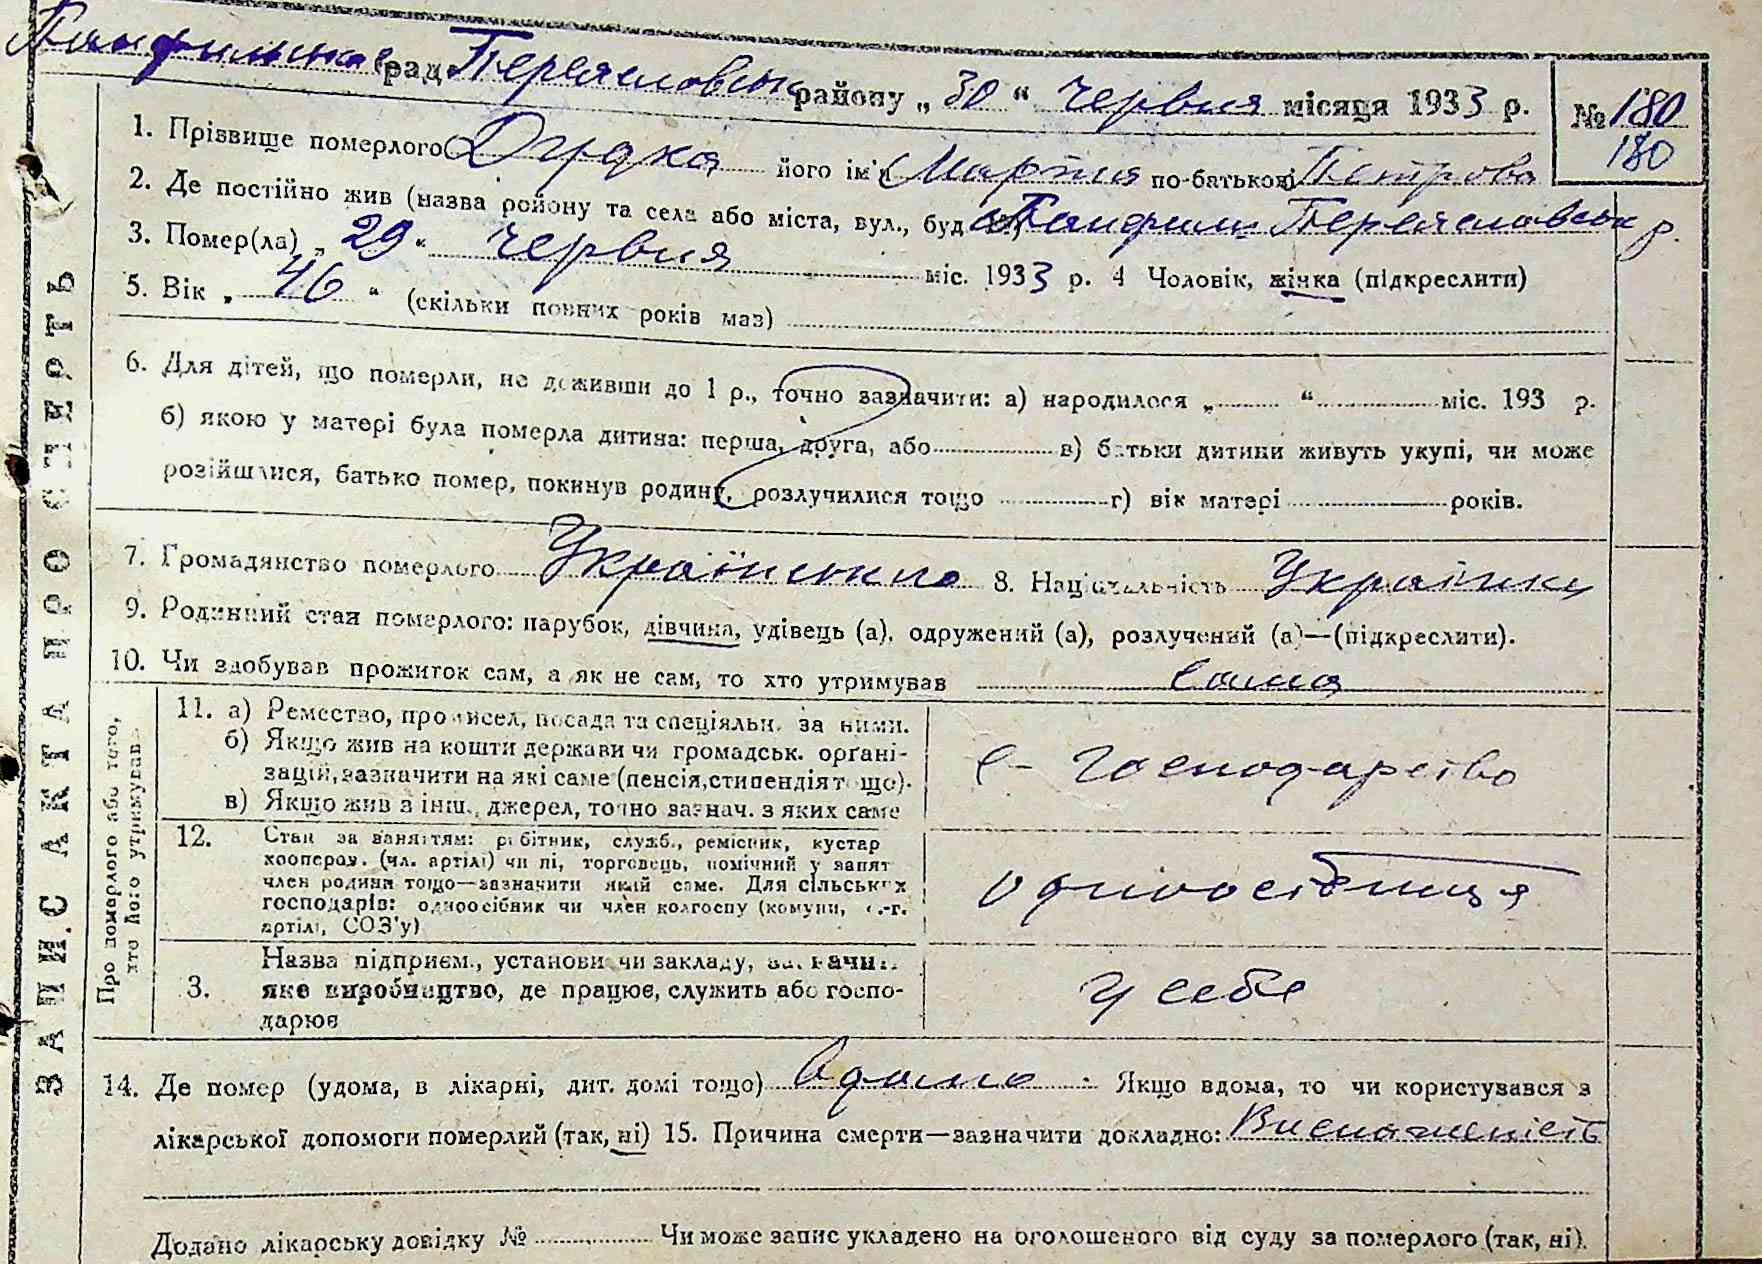 Панфилська рад Переяславськ району „ 30 “ червня місяця 1933 р. № 180
180
1. Прізвище померлого Дудка його ім'я Марфия по-батькові Петрова
2. Де постійно жив (назва району та села або міста, вул., буд. №) Панфили Переяславськ р.
3. Помер(ла) „ 29 “ червня міс. 1933 р. 4 Чоловік, жінка (підкреслити)
5. Вік „ 46 “ (скільки повних років маз)
6. Для дітей, що померли, не доживши до 1 р., точно зазначити: а) народилося „ “ міс. 193 р.
б) якою у матері була померла дитина: перша, друга, або в) батьки дитини живуть укупі, чи може
розійшлися, батько помер, покинув родину, розлучилися тощо г) вік матері років.
7. Громадянство померлого Українського 8. Національність Українки
9. Родинний стан померлого: парубок, дівчина, удівець (а), одружений (а), розлучений (а)—(підкреслити).
10. Чи здобував прожиток сам, а як не сам, то хто утримував сама
ЗАПИС АКТА ПРО СМЕРТЬ
Про померлого або того, хто його утримував
11. а) Ремество, промисел, посада та спеціяльн. за ними.
б) Якщо жив на кошти держави чи громадськ. органі-
зацій, зазначити на які саме (пенсія, стипендія тощо).
в) Якщо жив з інш., джерел, точно зазнач. з яких саме
с- господарство
12. Стан за заняттям: робітник, служб., ремісник, кустар
кооперов. (чл. артілі) чи ні, торговець, помічний у занят
член родини тощо—зазначити який саме. Для сільських
господарів: одноосібник чи член колгоспу (комуни, с.-г.
артілі, СОЗ'у)
одноосібниця
3. Назва підприєм., установи чи закладу, зазначити
яке виробництво, де працює, служить або госпо-
дарює
у себе
14. Де помер (удома, в лікарні, дит. домі тощо) вдома. Якщо вдома, то чи користувався з
лікарської допомоги померлий (так, ні) 15. Причина смерти—зазначити докладно: Виснаженість
Додано лікарську довідку № Чи може запис укладено на оголошеного від суду за померлого (так, ні).